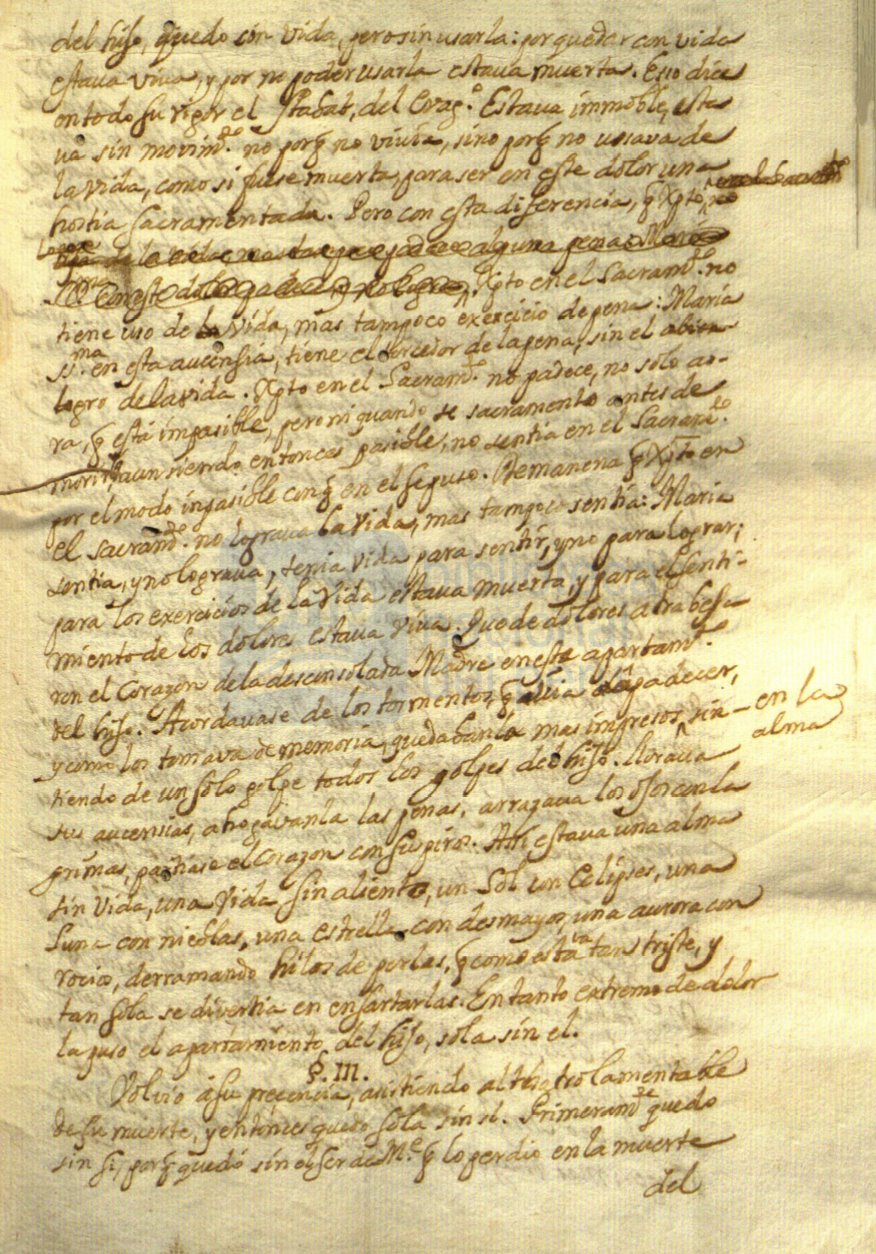 del hijo, quedo con vida, pero sin usarla: por quedar con vida
estava viva, y por no poder usarla estava muerta. Esso dice
en todo su rigor el Stabat, del Evag.º Estava immoble, esta
va sin movim.to no porq̃ no vivia, sino porq̃ no ussava de
la vida, como si fuese muerta, para ser en este dolor una
hostia sacramentada. Pero con esta diferencia, q̃ Xpto,
Xpto en el Sacram.to no
tiene uso de la vida, mas tampoco exercicio de pena: Maria
SS.ma en esta aucensia, tiene el torcedor de la pena, sin el
logro de la vida. Xpto en el Sacram.to no padece, no solo ao-
ra, q̃ está impasible, pero ni quando se sacramento antes de
morir, aun siendo entonces pasible, no sentia en el Sacram.to
por el modo inpasible con q̃ en el se puso. De manera q̃ Xpto en
el sacram.to no lograva la vida, mas tampoco sentia: Maria
sentia, y no lograva, tenia vida para sentir, y no para lograr;
para los exercicios de la vida estava muerta, y para el senti-
miento de los dolores estava viva. Que de dolores atrabesa-
ron el corazon de la desconsolada Madre en este apartam.to
del hijo. Acordavase de los tormentos, q̃ avia de padecer,
y como los tomava de memoria, quedabanla mas impresos, sin-
en la
alma
tiendo de un solo golpe todos los golpes del hijo. llorava
sus aucensias, ahogavanla las penas, arrazava los ojos con la
grimas, partiase el corazon con suspiros. Asi estava una alma
sin vida, una vida sin aliento, un Sol con Eclipses, una
Luna con nieblas, una estrella con desmayos, una aurora con
rocio, derramando hilos de perlas, q̃ como estava tan triste, y
tan sola se divertia en ensartarlas. En tanto extremo de dolor
la puso el apartamiento del hijo, sola sin el.
§. III.
Volvio a su precencia, asistiendo al theatro lamentable
de su muerte, y entonces quedo sola sin si. Primeram.te quedo
sin si, porq̃ quedó sin el ser de M.e q̃ lo perdio en la muerte
del